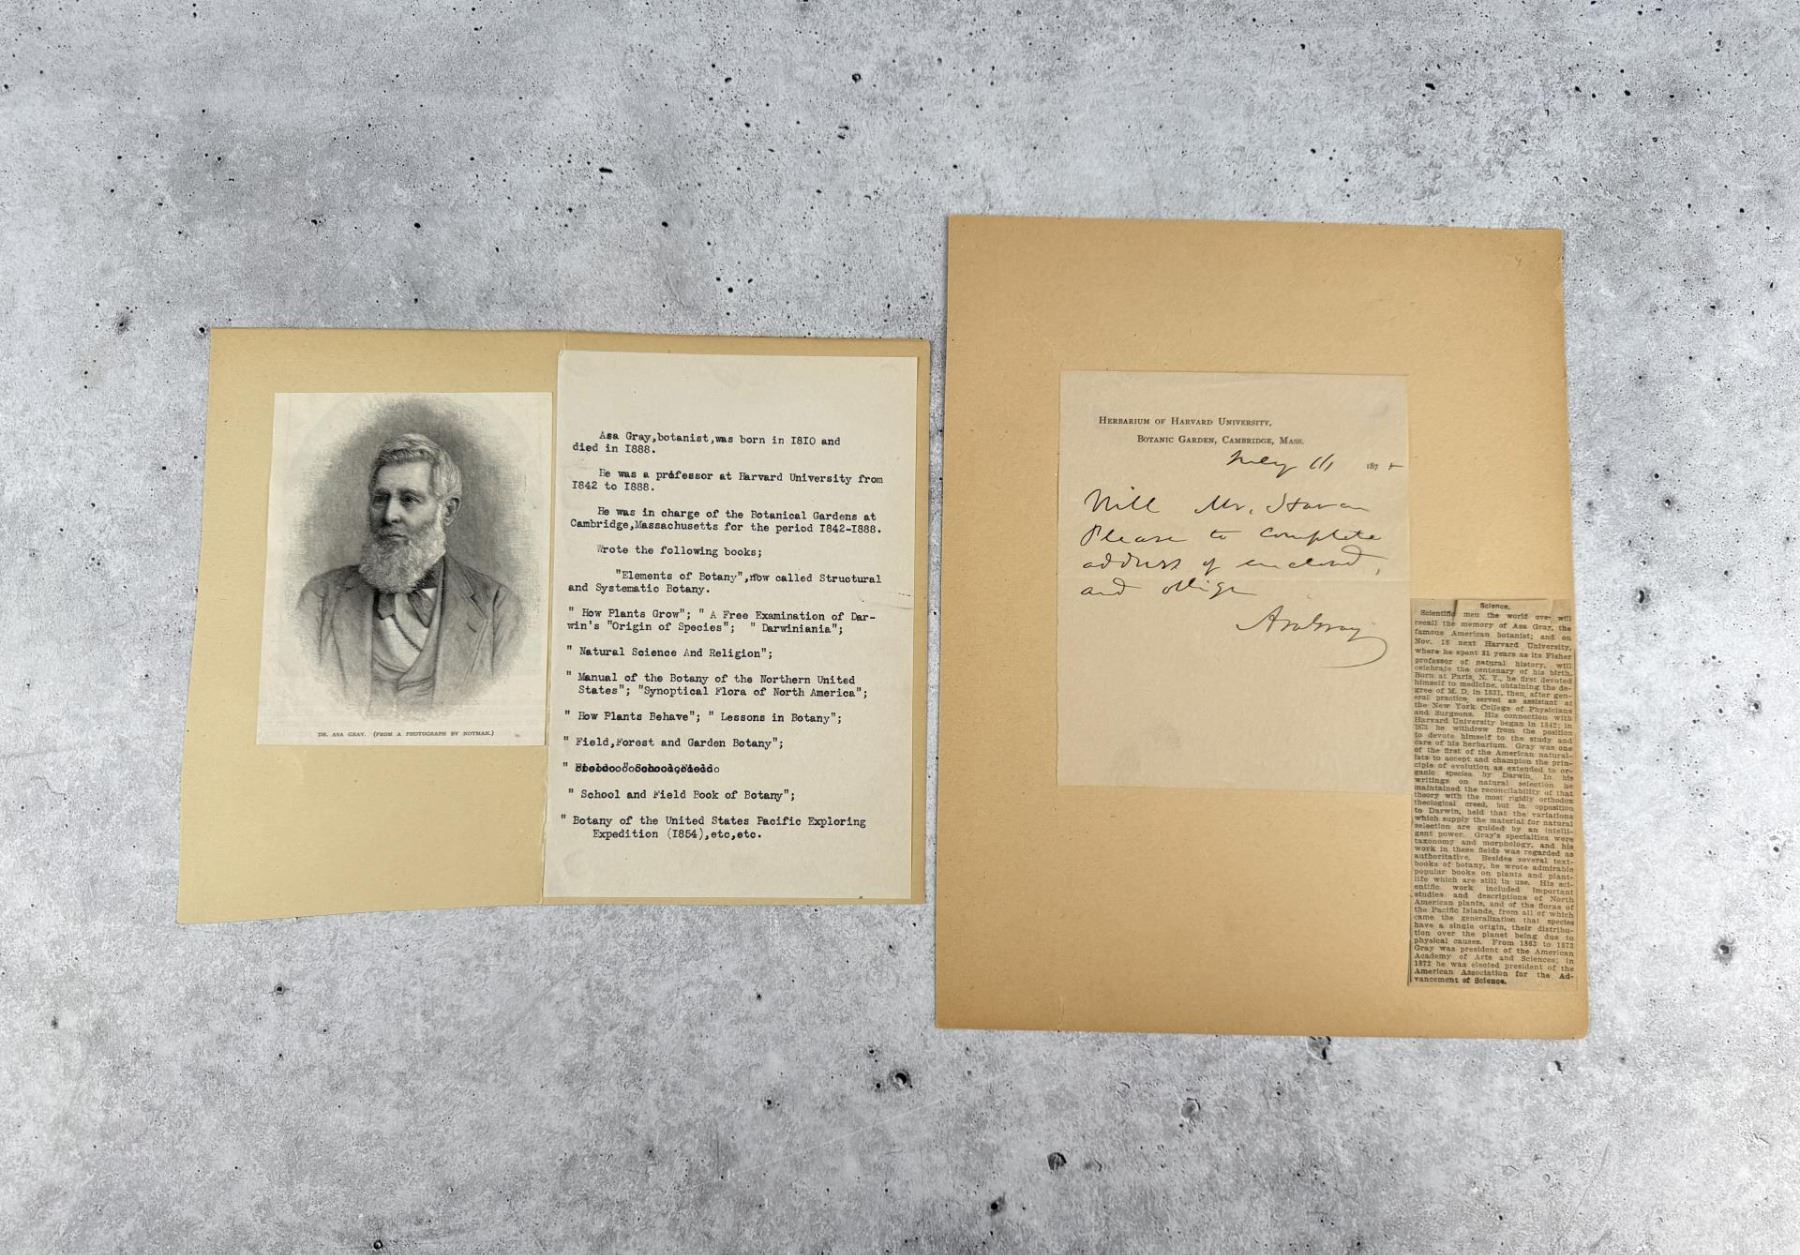 DR. ASA GRAY. (FROM A PHOTOGRAPH BY NOTMAN.)
Asa Gray,botanist,was born in I8IO and
died in I888.
He was a professor at Harvard University from
I842 to I888.
He was in charge of the Botanical Gardens at
Cambridge,Massachusetts for the period I842-I888.
Wrote the following books;
"Elements of Botany",now called Structural
and Systematic Botany.
" How Plants Grow"; " A Free Examination of Dar-
win's "Origin of Species"; " Darwiniana";
" Natural Science And Religion";
" Manual of the Botany of the Northern United
States"; "Synoptical Flora of North America";
" How Plants Behave"; " Lessons in Botany";
" Field,Forest and Garden Botany";
" School and Field Book of Botany";
" Botany of the United States Pacific Exploring
Expedition (I854),etc,etc.
HERBARIUM OF HARVARD UNIVERSITY,
BOTANIC GARDEN, CAMBRIDGE, MASS.
July 187
Will Mr.
Please to complete
address of enclosed,
and oblige
Asa Gray
Science.
Scientific men the world over will
recall the memory of Asa Gray, the
famous American botanist; and on
Nov. 18 next Harvard University,
where he spent 31 years as its Fisher
professor of natural history, will
celebrate the centenary of his birth.
Born at Paris, N. Y., he first devoted
himself to medicine, obtaining the de-
gree of M. D. in 1831, then, after gen-
eral practice, served as assistant at
the New York College of Physicians
and Surgeons. His connection with
Harvard University began in 1842; in
1873 he withdrew from the position
to devote himself to the study and
care of his herbarium. Gray was one
of the first of the American natural-
ists to accept and champion the prin-
ciple of evolution as extended to or-
ganic species by Darwin. In his
writings on natural selection he
maintained the reconcilability of that
theory with the most rigidly orthodox
theological creed, but in opposition
to Darwin, held that the variations
which supply the material for natural
selection are guided by an intelli-
gent power. Gray's specialties were
taxonomy and morphology, and his
work in these fields was regarded as
authoritative. Besides several text-
books of botany, he wrote admirable
popular books on plants and plant-
life which are still in use. His sci-
entific work included important
studies and descriptions of North
American plants, and of the floras of
the Pacific Islands, from all of which
came the generalization that species
have a single origin, their distribu-
tion over the planet being due to
physical causes. From 1863 to 1873
Gray was president of the American
Academy of Arts and Sciences; in
1872 he was elected president of the
American Association for the Ad-
vancement of Science.